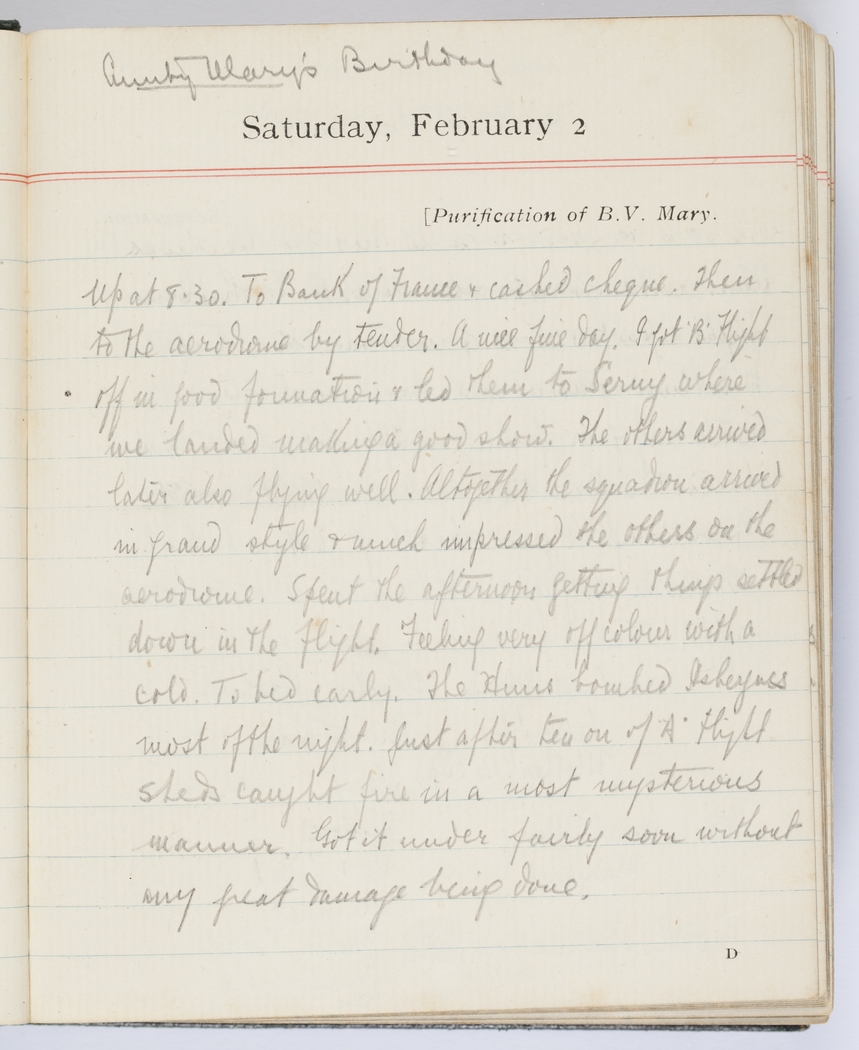 Aunty Mary's Birthday
Saturday, February 2
[Purification of B.V. Mary.
Up at 8.30. To Bank of France & cashed cheque. Then
to the aerodrome by tender. A nice fine day. I got 'B' Flight
off in good formation & led them to Serny where
we landed making a good show. The others arrived
later also flying well. Altogether the squadron arrived
in grand style & much impressed the others on the
aerodrome. Spent the afternoon getting things settled
down in the flight. Feeling very off colour with a
cold. To bed early. The Huns bombed
most of the night. Just after ten on of 'A' Flight
sheds caught fire in a most mysterious
manner. Got it under fairly soon without
any great damage being done.
D